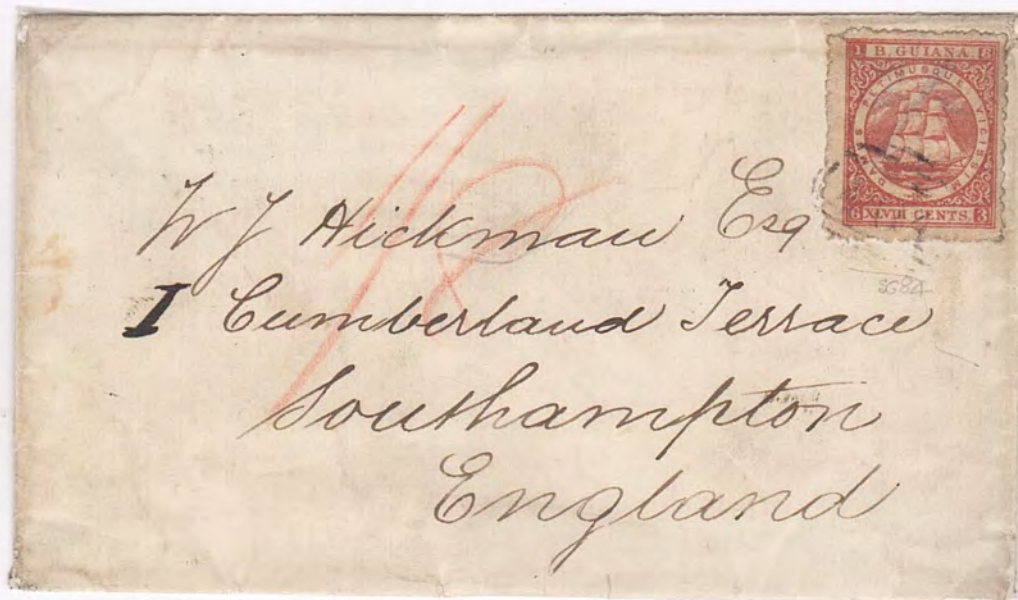 B. GUIANA.
DAMUS PETIMUSQUE VICISSIM
1 8 6 3
XLVIII CENTS.
1/8
W J Hickman Esq
1 Cumberland Terrace
Southampton
England
SG84